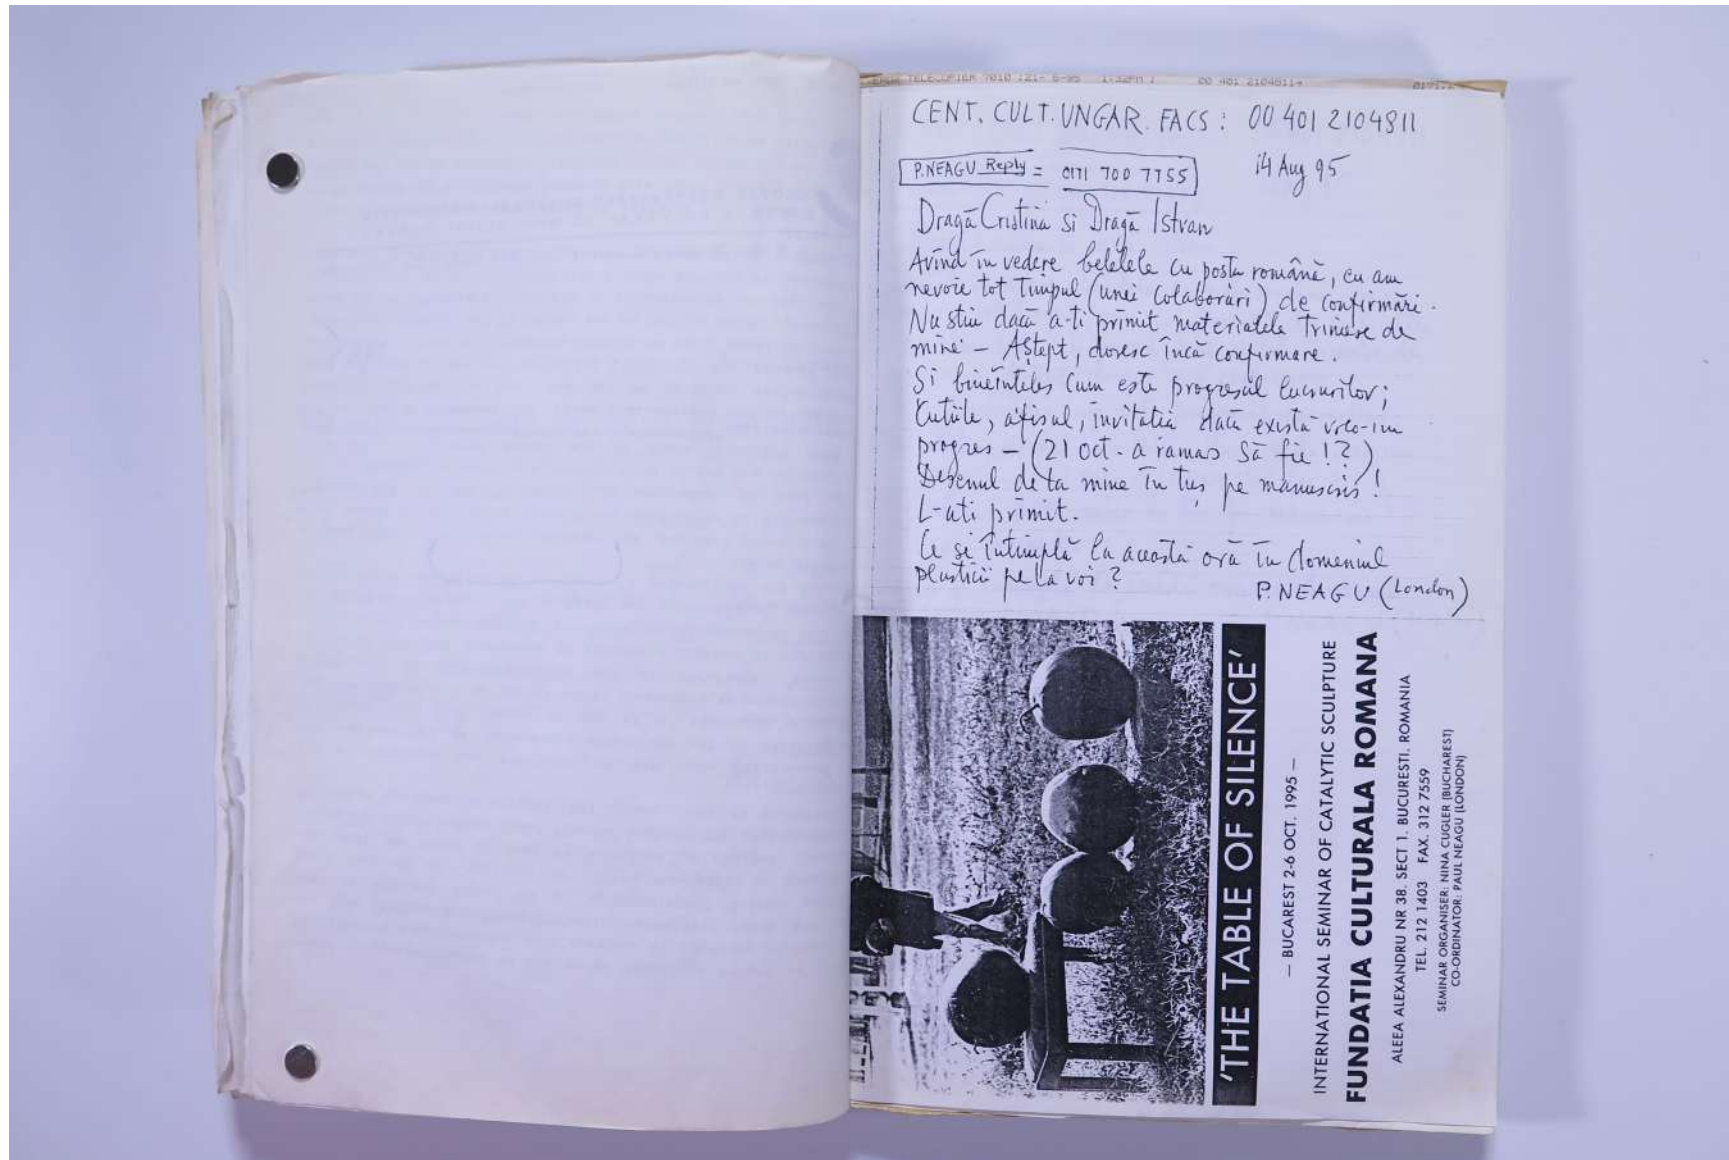 TELECOPIER 7010 ; 21- 8-95 1:32PM ; 00 401 2104811→
CENT. CULT. UNGAR. FACS : 00 401 2104811
P.NEAGU Reply = 0171 700 7755
14 Aug 95
Dragă Cristina si Dragă Istvan
Avînd în vedere belelele cu poșta română, eu am
nevoie tot timpul (unei colaborări) de confirmări.
Nu stiu dacă a-ti primit materialele trimise de
mine – Aștept, doresc încă confirmare.
Si bineînteles cum este progresul lucrurilor;
Cutiile, afisul, invitatia dacă există vreo-un
progres – (21 oct. a ramas Să fie !?)
Desenul de la mine în tuș pe manuscris !
L-ati primit.
Ce se întîmplă la această oră în domeniul
plasticii pe la voi ?
P. NEAGU (London)
'THE TABLE OF SILENCE'
— BUCAREST 2-6 OCT. 1995 —
INTERNATIONAL SEMINAR OF CATALYTIC SCULPTURE
FUNDATIA CULTURALA ROMANA
ALEEA ALEXANDRU NR 38. SECT 1. BUCURESTI. ROMANIA
TEL. 212 1403 FAX. 312 7559
SEMINAR ORGANISER: NINA CUGLER (BUCHAREST)
CO-ORDINATOR: PAUL NEAGU (LONDON)